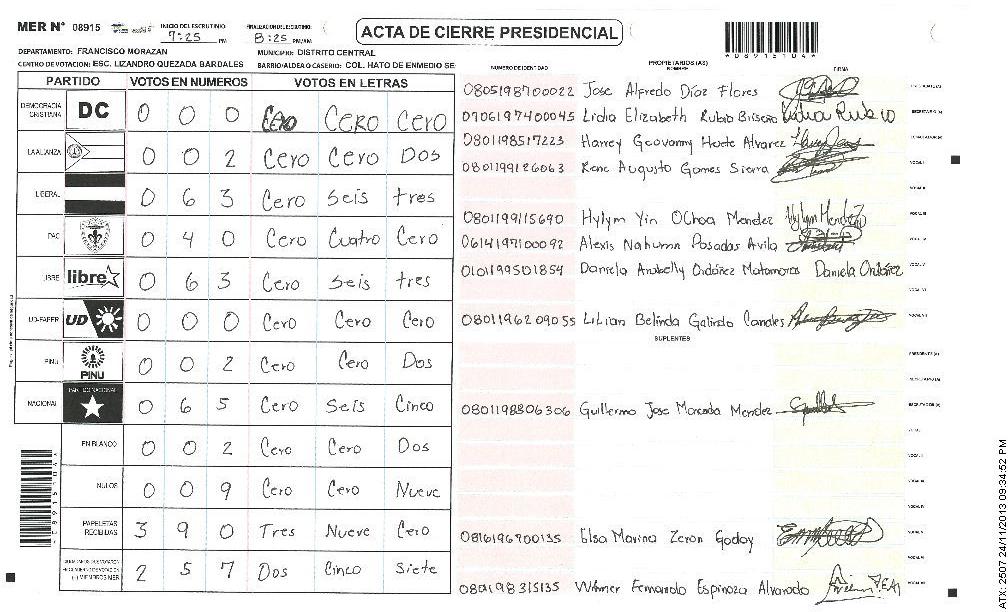 MER N° 08915 INICIO DEL ESCRUTINIO 7:25 PM FINALIZACION DEL ESCRUTINIO 8:25 PM/AM
ACTA DE CIERRE PRESIDENCIAL
*08915104*
DEPARTAMENTO: FRANCISCO MORAZAN MUNICIPIO: DISTRITO CENTRAL
CENTRO DE VOTACION: ESC. LIZANDRO QUEZADA BARDALES BARRIO/ALDEA O CASERIO: COL. HATO DE ENMEDIO SE
PARTIDO VOTOS EN NUMEROS VOTOS EN LETRAS
DEMOCRACIA CRISTIANA DC 0 0 0 Cero Cero Cero
LA ALIANZA 0 0 2 Cero Cero Dos
LIBERAL 0 6 3 Cero Seis tres
PAC 0 4 0 Cero Cuatro Cero
LIBRE libre 0 6 3 Cero Seis tres
UD-FAPER UD 0 0 0 Cero Cero Cero
PINU PINU 0 0 2 Cero Cero Dos
NACIONAL PARTIDO NACIONAL 0 6 5 Cero Seis Cinco
EN BLANCO 0 0 2 Cero Cero Dos
NULOS 0 0 9 Cero Cero Nueve
PAPELETAS RECIBIDAS 3 9 0 Tres Nueve Cero
2 5 7 Dos Cinco Siete
NUMERO DE IDENTIDAD PROPIETARIOS (AS) NOMBRE FIRMA
0805198700022 Jose Alfredo Díaz Flores
0706197400045 Lidia Elizabeth Rubio Lidia Rubio
0801198517223 Harrey Geovanny Huete Alvarez
0801199126063 Rene Augusto Gomes Sierra
0801199115690 Hylym Yin Ochoa Mendez Hylym Mendez
0614197100092 Alexis Nahumn Posadas Avila
0101199501854 Daniela Anabelly Ordóñez Matamoros Daniela Ordóñez
0801196209055 Lilian Belinda Galindo Canales
SUPLENTES
0801198806306 Guillermo Jose Moncada Mendez
0816196700135 Elsa Marina Zeron Godoy
Fernando Espinoza Alvarado
ATX: 2507 24/11/2013 09:34:52 PM